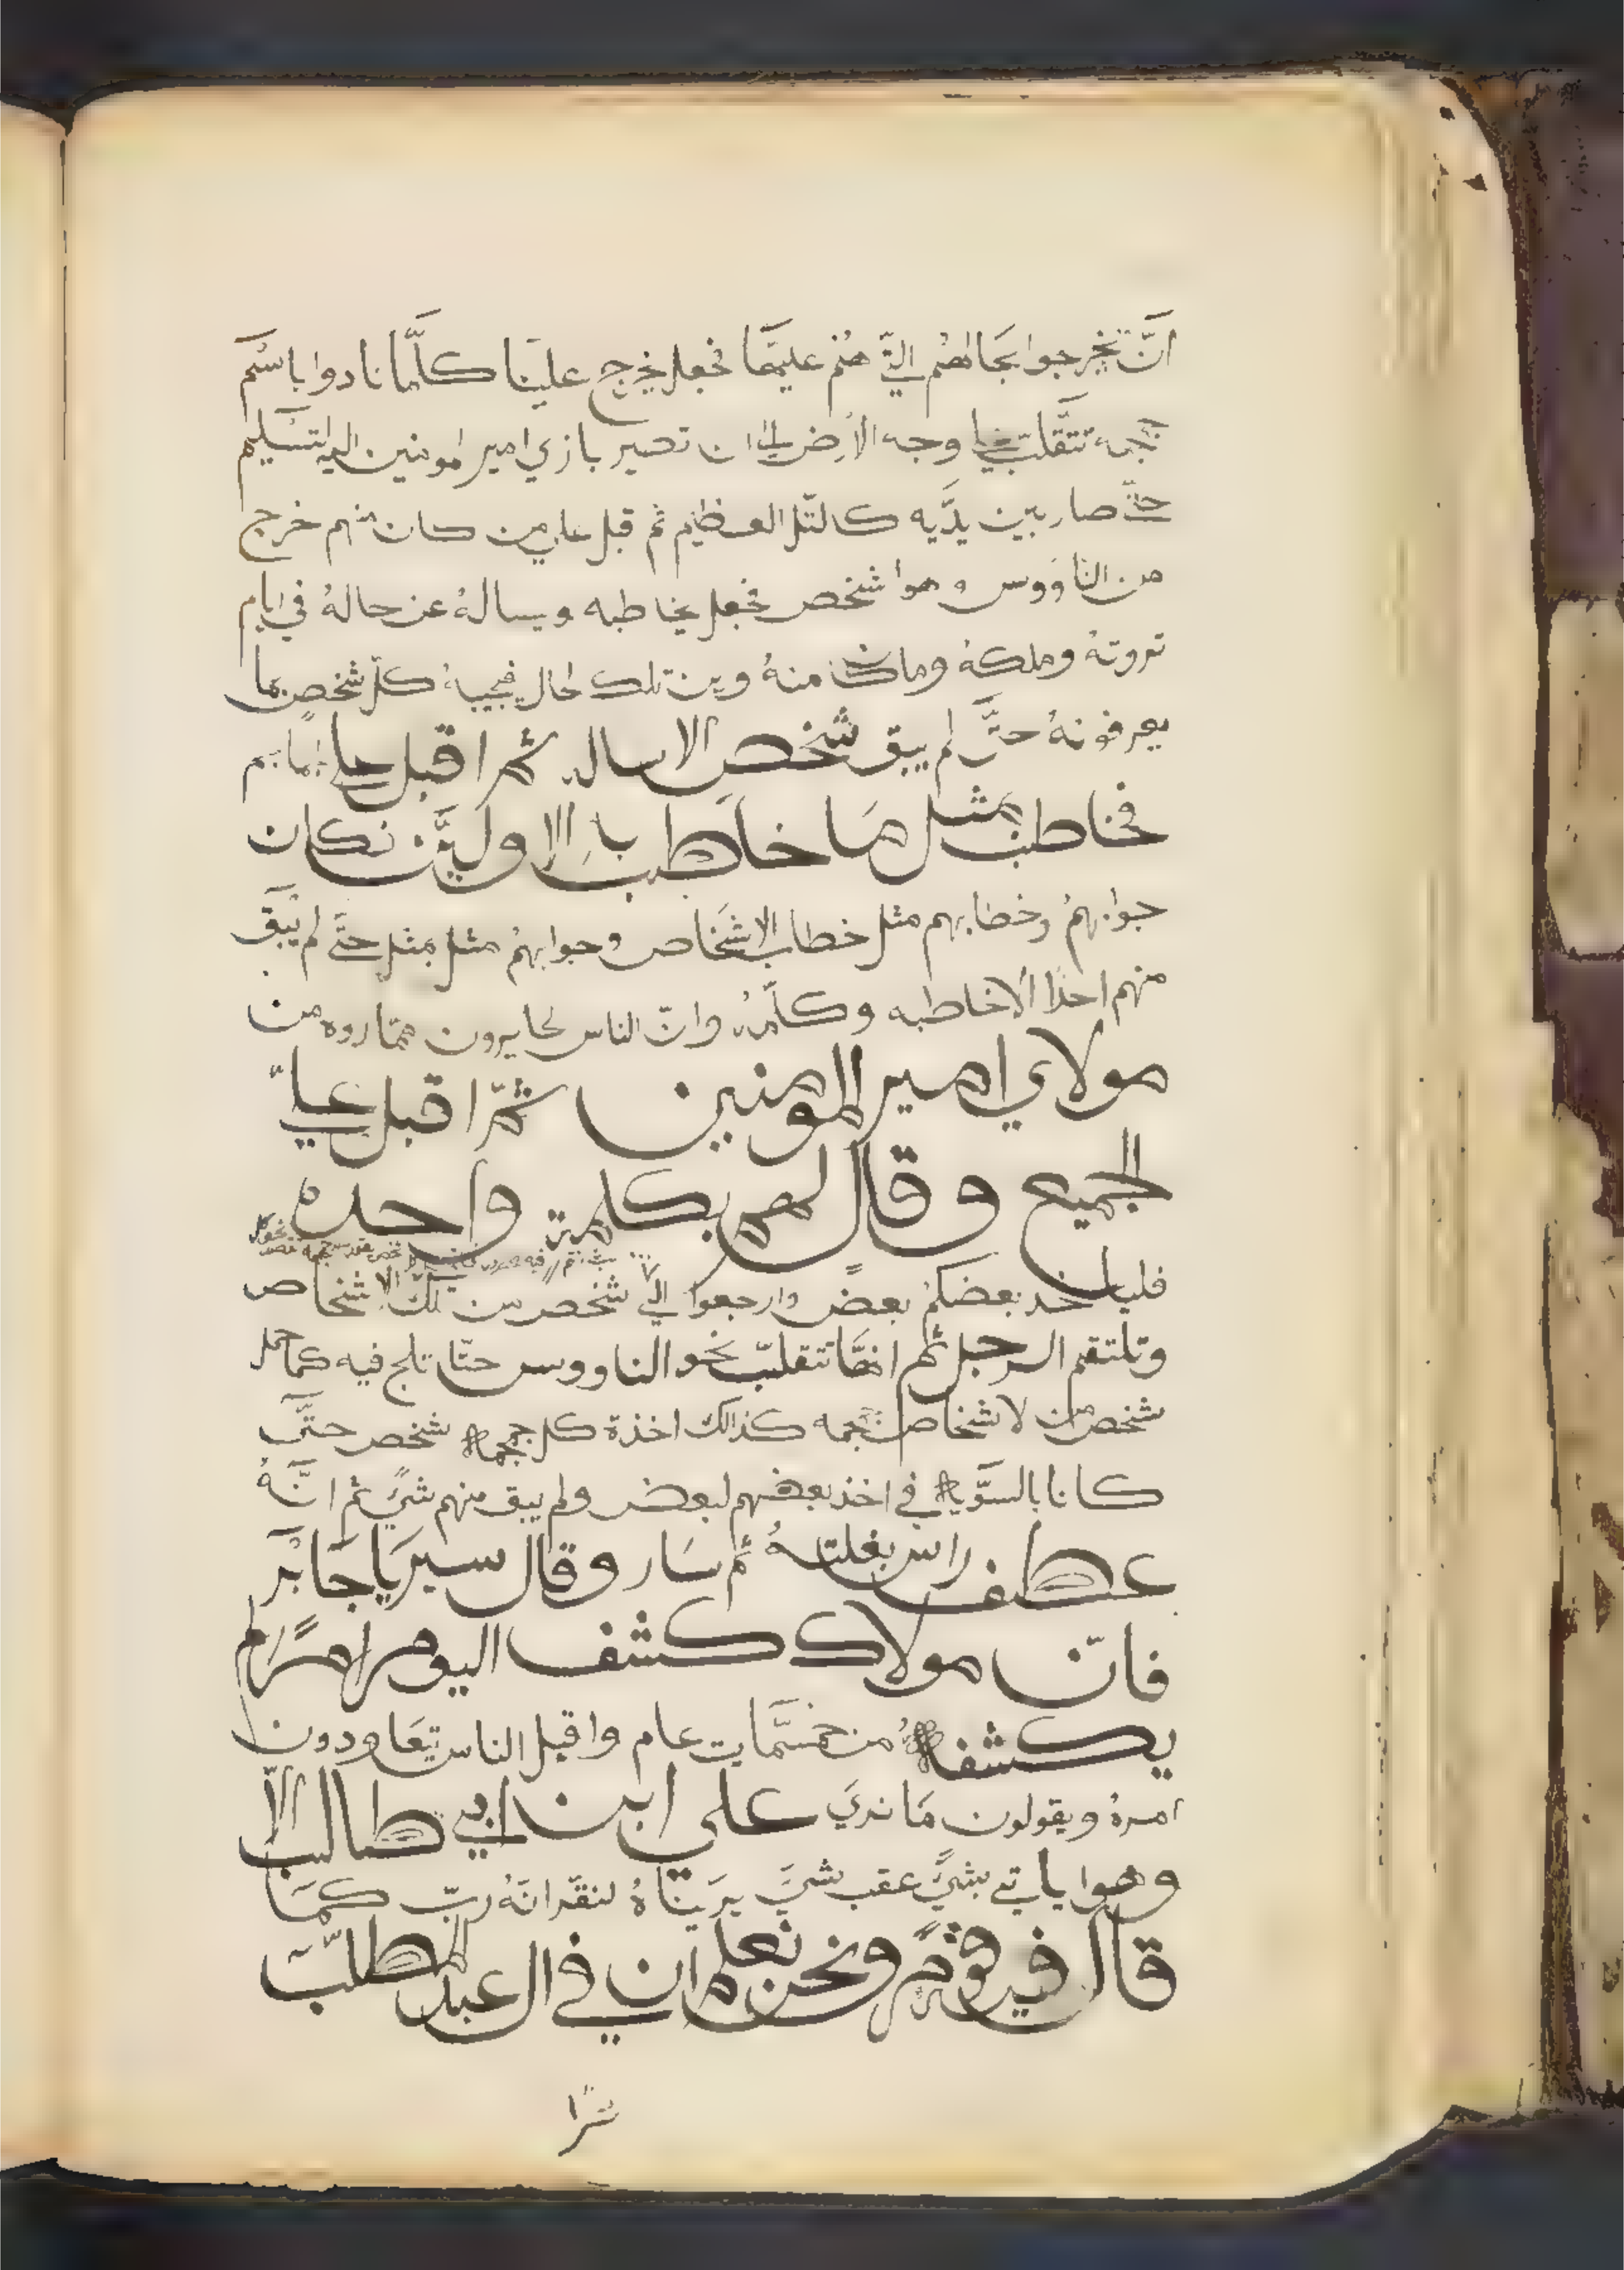 انّ تخرجوا بحالهم التي هم عليها فجعل يخرج علينا كلّما نادوا باسم
جمجمه تتقلب علي وجه الأرض الى ان تصير بازي امير المومنين اليه التسليم
حتّى صار بين يدّيه كالتّل العظيم ثم قبل على من كان منهم خرج
من الناووس وهوا شخص فجعل يخاطبه ويساله عن حاله في ايام
ثروته وملكه وماكان منه ومن تلك الحال فيجيبه كلّ شخص بما
يعرفونه حتّى لم يبق شخص الا ساله ثم اقبل على
فخاطب مثل ما خاطب با الاوليّن فكان
جوابهم وخطابهم مثل خطاب الاشخاص وجوابهم مثل بمثل حتّى لم يبق
منهم احدًا الا خاطبه وكلّمه وانّ الناس لحايرون ممّا راوه من
مولاي امير المومنين ثمّ اقبل علي
الجميع وقال لهم بكلمة واحده
فلياخد بعضكم بعض وارجعوا الي شخص من تلك الاشخاص
وتلتقم الرجل ثم انها تتقلبّ نحو الناووس حتّا تلج فيه كما حمل
شخص من لاشخاص جمجمه كذالك اخذة كل جمجمه شخص حتّى
كانا بالسوّيه في اخذ بعضهم لبعض ولم يبق منهم شيً ثم انّه
عطف راس بغلته ثم سار وقال سير يا جابر
فانّ مولاك كشف اليوم امرًا لم
يكشفه من خمسّمايت عام واقبل الناس يتعاودون
امره ويقولون ما نري على ابن ابي طالب الاّ
وهوا ياتي بشيً عقب شيً يريناه لنقّر انه ربّ كما
قال فيه قومً ونحن نعلم ان في ال عبد المطلب